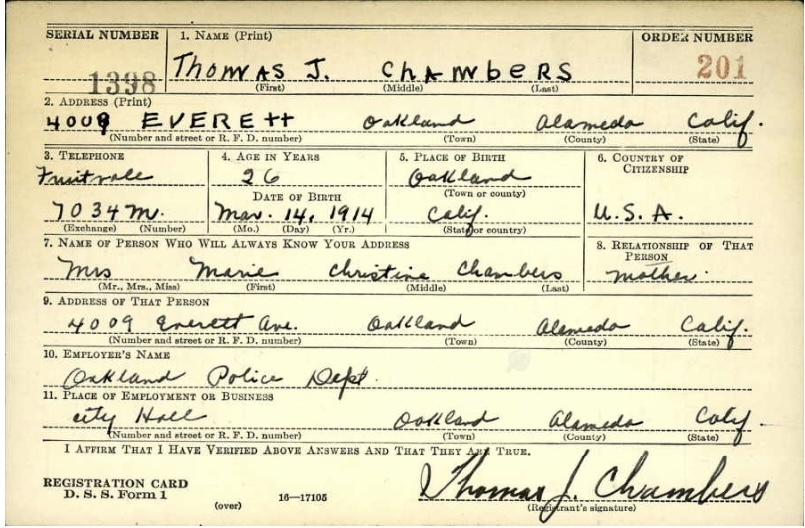 SERIAL NUMBER 1. NAME (Print) ORDER NUMBER
1398 THOMAS J. CHAMBERS 201
(First) (Middle) (Last)
2. ADDRESS (Print)
4009 EVERETT Oakland Alameda Calif.
(Number and street or R. F. D. number) (Town) (County) (State)
3. TELEPHONE 4. AGE IN YEARS 5. PLACE OF BIRTH 6. COUNTRY OF CITIZENSHIP
Fruitvale 26 Oakland
DATE OF BIRTH (Town or county)
7034 M. Mar. 14, 1914 Calif. U.S.A.
(Exchange) (Number) (Mo.) (Day) (Yr.) (State or country)
7. NAME OF PERSON WHO WILL ALWAYS KNOW YOUR ADDRESS 8. RELATIONSHIP OF THAT PERSON
Mrs Marie Christine Chambers mother.
(Mr., Mrs., Miss) (First) (Middle) (Last)
9. ADDRESS OF THAT PERSON
4009 Everett Ave. Oakland Alameda Calif.
(Number and street or R. F. D. number) (Town) (County) (State)
10. EMPLOYER'S NAME
Oakland Police Dept.
11. PLACE OF EMPLOYMENT OR BUSINESS
City Hall Oakland Alameda Calif.
(Number and street or R. F. D. number) (Town) (County) (State)
I AFFIRM THAT I HAVE VERIFIED ABOVE ANSWERS AND THAT THEY ARE TRUE.
REGISTRATION CARD Thomas J. Chambers
D. S. S. Form 1 16—17105 (Registrant's signature)
(over)